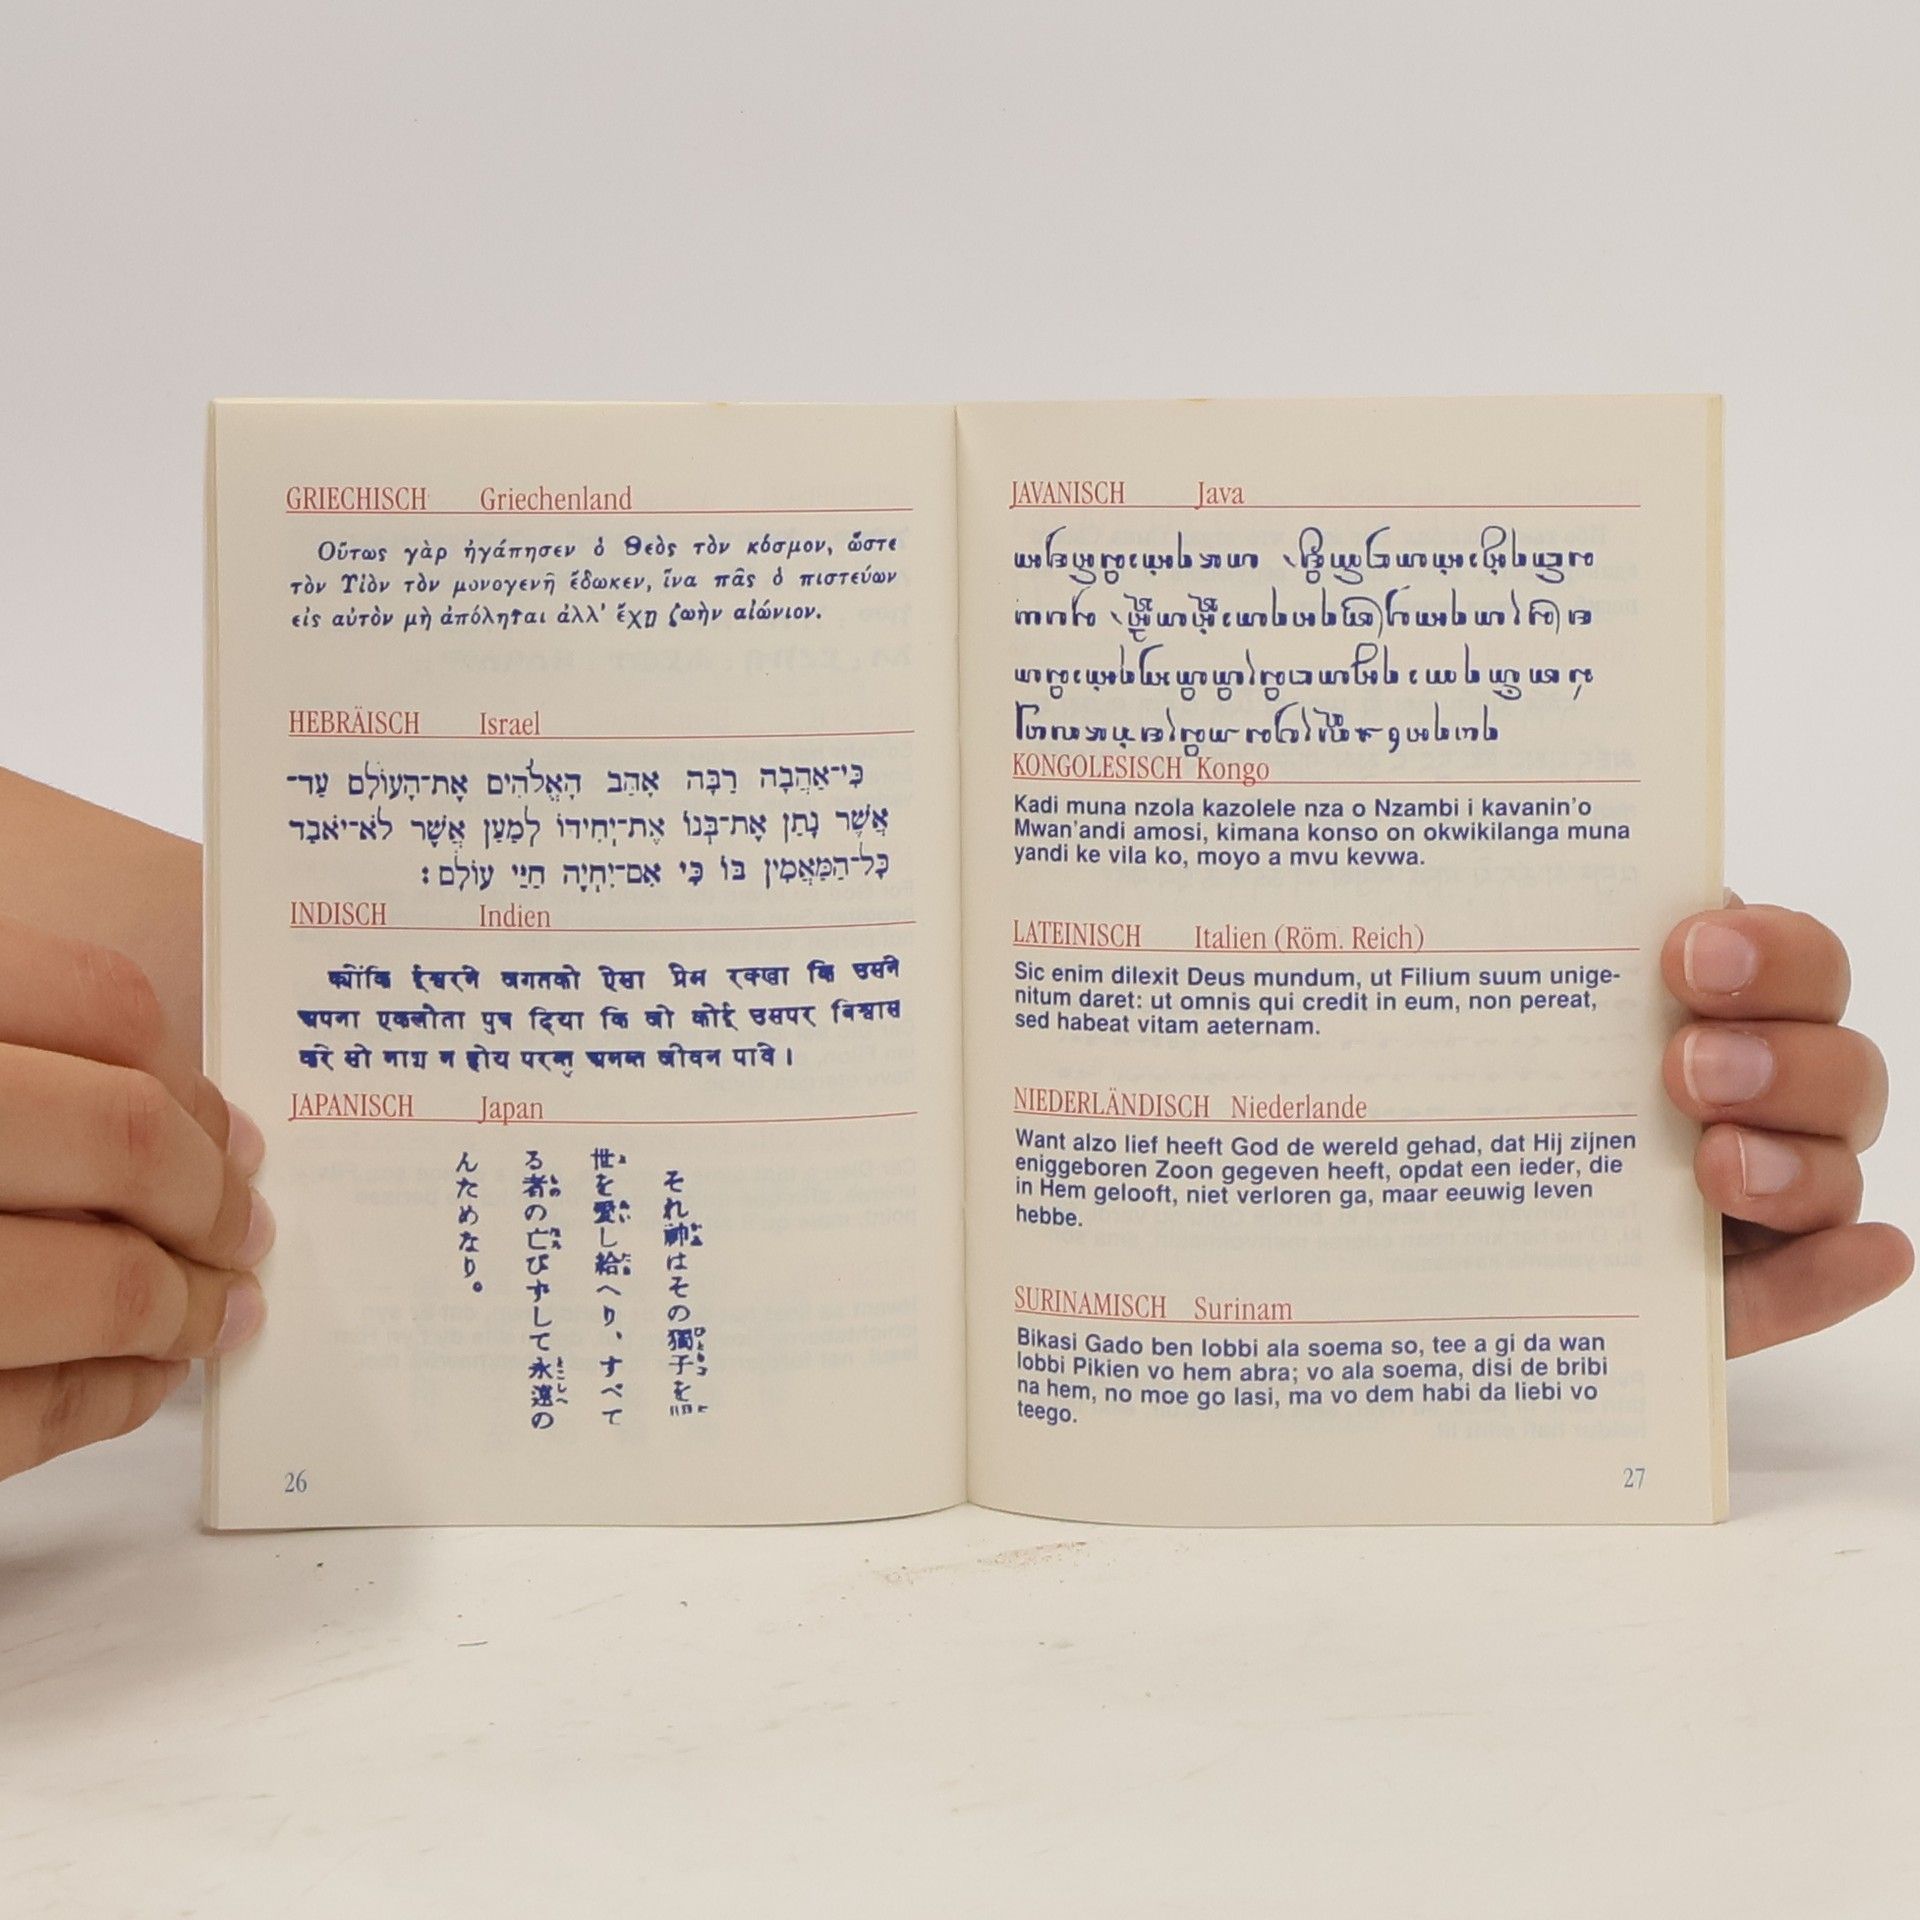 GRIECHISCH Griechenland
Οὕτως γὰρ ἠγάπησεν ὁ Θεὸς τὸν κόσμον, ὥστε
τὸν Υἱὸν τὸν μονογενῆ ἔδωκεν, ἵνα πᾶς ὁ πιστεύων
εἰς αὐτὸν μὴ ἀπόληται ἀλλ' ἔχῃ ζωὴν αἰώνιον.
HEBRÄISCH Israel
כִּי־אַהֲבָה רַבָּה אָהַב הָאֱלֹהִים אֶת־הָעוֹלָם עַד־
אֲשֶׁר נָתַן אֶת־בְּנוֹ אֶת־יְחִידוֹ לְמַעַן אֲשֶׁר לֹא־יֹאבַד
כָּל־הַמַּאֲמִין בּוֹ כִּי אִם־יִחְיֶה חַיֵּי עוֹלָם׃
INDISCH Indien
क्योंकि ईश्वरने जगतको ऐसा प्रेम रक्खा कि उसने
अपना एकलौता पुत्र दिया कि जो कोई उसपर बिश्वास
करे सो नाश न होय परन्तु अनन्त जीवन पावे।
JAPANISCH Japan
それ神はその獨子を
世を愛し給へり、すべて
る者の亡びずして永遠の
んためなり。
26
JAVANISCH Java
KONGOLESISCH Kongo
Kadi muna nzola kazolele nza o Nzambi i kavanin'o
Mwan'andi amosi, kimana konso on okwikilanga muna
yandi ke vila ko, moyo a mvu kevwa.
LATEINISCH Italien (Röm. Reich)
Sic enim dilexit Deus mundum, ut Filium suum unige-
nitum daret: ut omnis qui credit in eum, non pereat,
sed habeat vitam aeternam.
NIEDERLÄNDISCH Niederlande
Want alzo lief heeft God de wereld gehad, dat Hij zijnen
eniggeboren Zoon gegeven heeft, opdat een ieder, die
in Hem gelooft, niet verloren ga, maar eeuwig leven
hebbe.
SURINAMISCH Surinam
Bikasi Gado ben lobbi ala soema so, tee a gi da wan
lobbi Pikien vo hem abra; vo ala soema, disi de bribi
na hem, no moe go lasi, ma vo dem habi da liebi vo
teego.
27